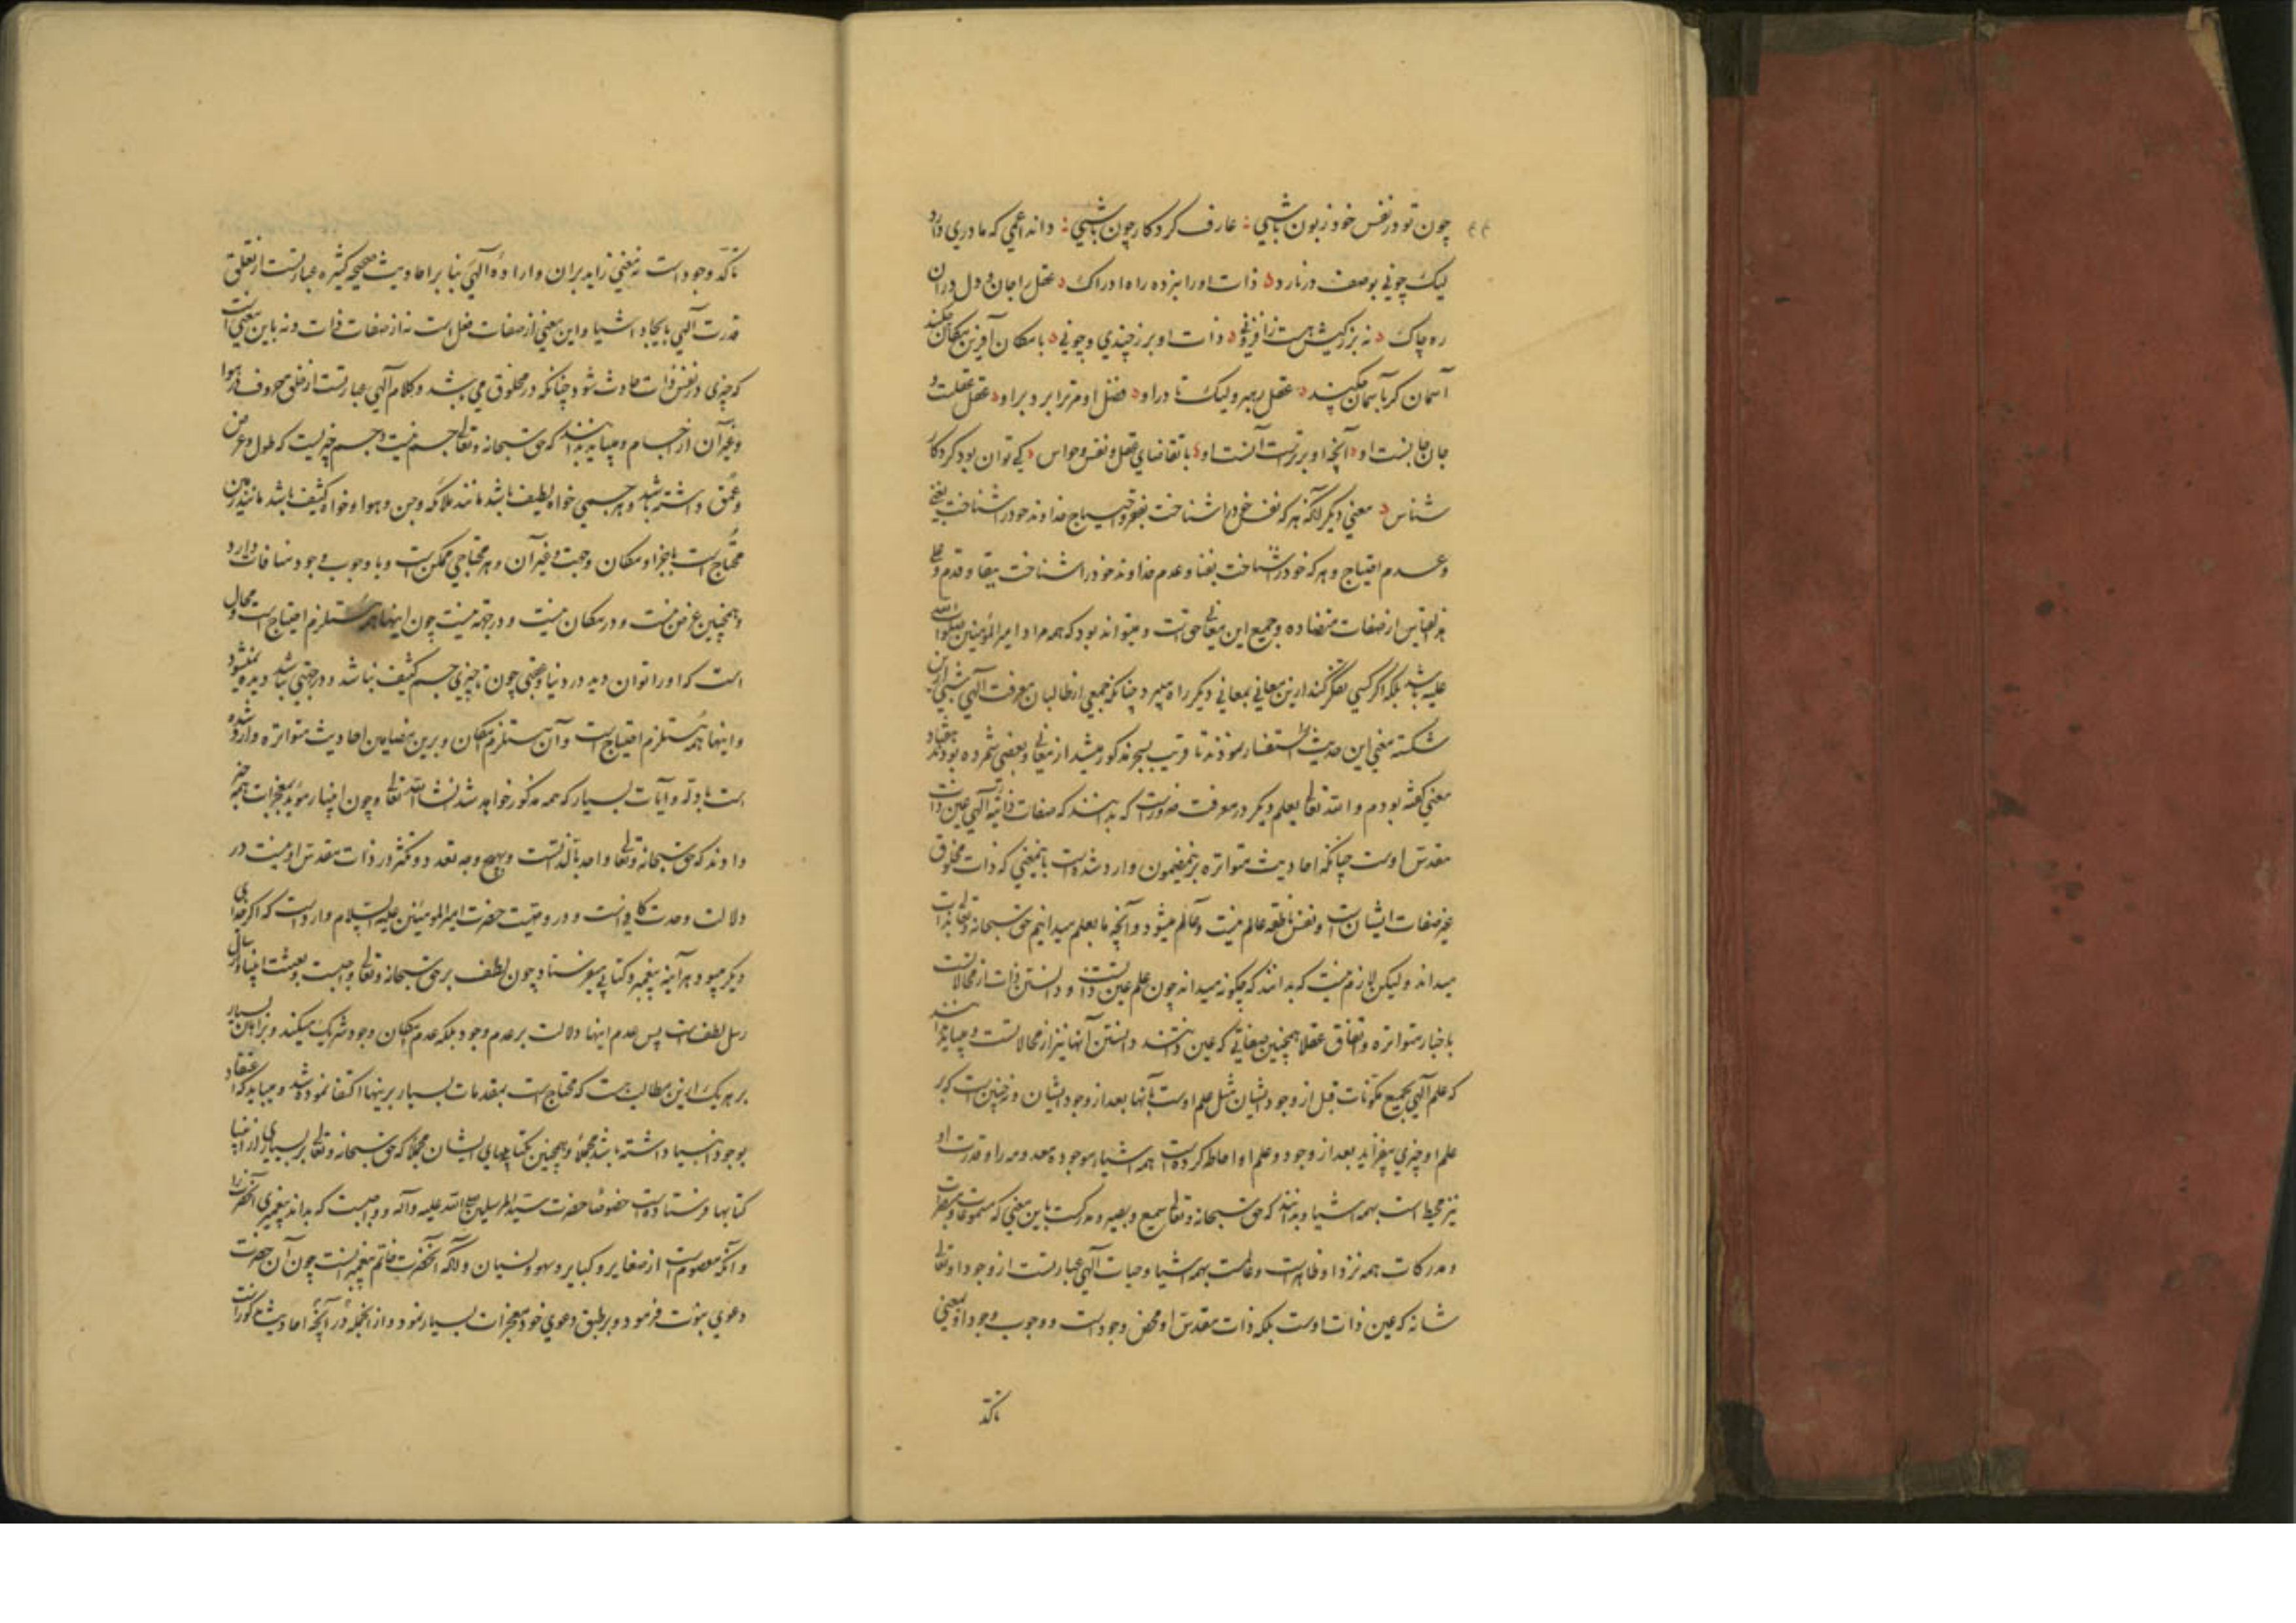 چون تو در نفس خود زبون باشی : عارف کردکار چون باشی : داند اعمی که مادری دارد
لیک چونی بوصف در نارد ذات او را نبرده راه ادراک عقل را جان و دل دران
ره چاک نه بزرکیش هست ز افزونی ذات او برز چندی و چونی با مکان آفرین مکان چکند
آسمان کر بآسمان چکند عقل رهبر ولیک تا در او فضل او مر ترا برد بر او عقل عقلست و
جان جانست او آنچه او برترست آنست او با تقاضای عقل و نفس و حواس کی توان بود کردکار
شناس معنی دیکر انکه هر که نفس خود را شناخت بفقر و احتیاج خداوند خود را شناخت بغنی
و عدم احتیاج و هر که خود را شناخت بفنا و عدم خداوند خود را شناخت ببقا و قدم و علی
هذا القیاس از صفات متضاده و جمیع این معانی حق است و میتواند بود که همه مراد امیر المؤمنین صلوات الله
علیه باشد بلکه اکر کسی تفکر کند ازین معانی بمعانی دیکر راه میبرد چنانکه جمعی از طالبان معرفت الهی شبی ازین
شکسته معنی این حدیث را استفسار نمودند تا قریب بسحر مذکور میشد از معانی و بعضی شمرده بودند هفتاد
معنی کفته بودم و الله تعالی یعلم و دیکر در معرفت ضرورست که بدانند که صفات ذاتیه الهی عین ذات
مقدس اوست چنانکه احادیث متواتره برین مضمون وارد شده است باین معنی که ذات مخلوق
غیر صفات ایشان است و نفس ناطقه عالم نیست و عالم میشود و آنچه ما بعلم میدانیم حق سبحانه و تعالی بذات
میداند ولیکن لازم نیست که بدانند که چکونه میداند چون علم عین ذاتست و دانستن ذات از محالاتست
باخبار متواتره و اتفاق عقلا همچنین صفاتی که عین ذاتند دانستن آنها نیز از محالاتست و میباید دانند
که علم الهی بجمیع مکونات قبل از وجود ایشان مثل علم اوست بآنها بعد از وجود ایشان و نه چنین است که بر
علم او چیزی بیفزاید بعد از وجود و علم او احاطه کرده است همه اشیاء موجوده و معدومه را و قدرت او
نیز محیط است بهمه اشیا و بدانند که حق سبحانه و تعالی سمیع و بصیر و مدرکست باین معنی که مسموعات و مبصرات
و مدرکات همه نزد او ظاهرست و عالمست بهمه اشیا و حیات الهی عبارتست از وجود او تعالی
شانه که عین ذات اوست بلکه ذات مقدس او محض وجود است و وجوب وجود او بمعنی
تاکد
تاکد وجود است نه معنی زاید بران و اراده الهی بنا بر احادیث صحیحه کثیره عبارتست از تعلق
قدرت الهی بایجاد اشیا و این معنی از صفات فعل است نه از صفات ذات و نه باین معنی است
که چیزی در نفس ذات حادث شود چنانکه در مخلوق می باشد و کلام الهی عبارتست از خلق حروف در هوا
و غیر آن از اجسام و میباید بدانند که حق سبحانه و تعالی جسم نیست و جسم چیزیست که طول و عرض
و عمق داشته باشد و هر جسمی خواه لطیف باشد مانند ملائکه و جن و هوا و خواه کثیف باشد مانند زمین
محتاج است باجزا و مکان و جهت و غیر آن و هر محتاجی ممکن است و با وجوب وجود منافات دارد
و همچنین عرض نیست و در مکان نیست و در جهة نیست چون اینها همه مستلزم احتیاج است و محال
است که او را توان دید در دنیا و عقبی چون تا چیزی جسم کثیف نباشد و در جهتی نباشد دیده نمیشود
و اینها همه مستلزم احتیاج است و آن مستلزم امکان و برین مضامین احادیث متواتره وارد شده
است با ادله و آیات بسیار که همه مذکور خواهد شد انشاء الله تعالی و چون انبیا مؤید بمعجزات همه خبر
دادند که حق سبحانه و تعالی واحد بالذاتست و بهیچ وجه تعدد و تکثر در ذات مقدس او نیست در
دلالت وحدت کافیست و در وصیت حضرت امیر المومنین علیه السلام وارد است که اکر خدای
دیکر میبود هر آینه پیغمبر و کتابی میفرستاد چون لطف بر حق سبحانه و تعالی واجبست و بعثت انبیا و ارسال
رسل لطف است پس عدم اینها دلالت بر عدم وجود بلکه عدم امکان وجود شریک میکند و براهین بسیار
بر هر یک ازین مطالب هست که محتاج است بمقدمات بسیار برینها اکتفا نموده شد و میباید که اعتقاد
بوجود انبیا داشته باشد مجملا و همچنین بکتابهای ایشان مجملا که حق سبحانه و تعالی بر بسیاری از انبیا
کتابها فرستاده است خصوصا حضرت سید المرسلین صلی الله علیه و آله و واجبست که بداند پیغمبری آنحضرت را
و آنکه معصوم است از صغایر و کبایر و سهو و نسیان و انکه آنحضرت خاتم پیغمبرانست چون آن حضرت
دعوی نبوت فرمود و بر طبق دعوی خود معجزات بسیار نمود و از انجمله در آنچه احادیث مذکور است